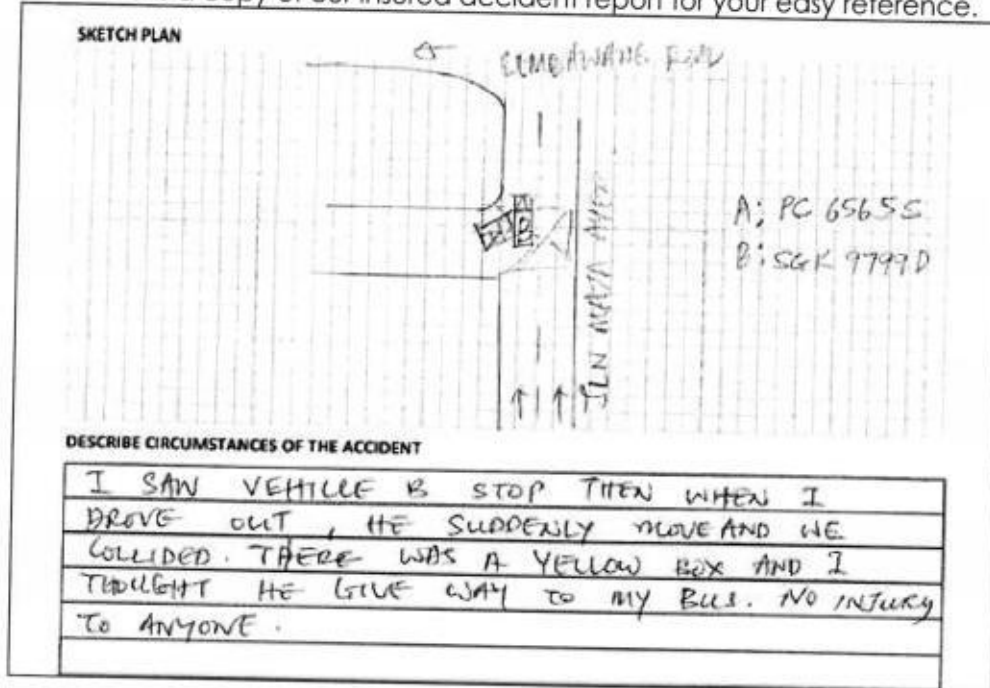 Copy of our insured accident report for your easy reference.
SKETCH PLAN
A: PC 6565S
B: SGK 9799D
JLN
DESCRIBE CIRCUMSTANCES OF THE ACCIDENT
I SAW VEHICLE B STOP THEN WHEN I
DROVE OUT , HE SUDDENLY MOVE AND WE
COLLIDED. THERE WAS A YELLOW BOX AND I
THOUGHT HE GIVE WAY TO MY BUS. NO INJURY
TO ANYONE.